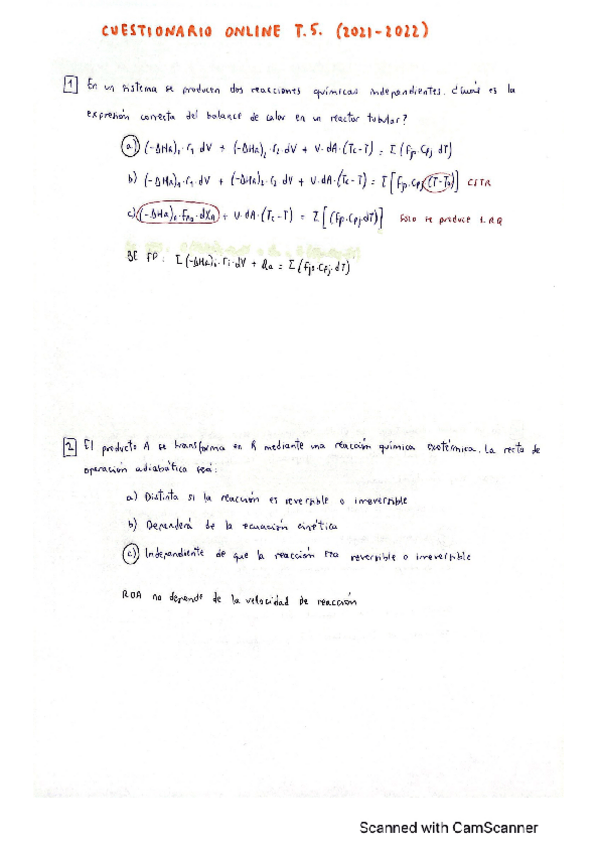 CUESTIONARIO ONLINE T.5. (2021-2022)
1 En un sistema se producen dos reacciones químicas independientes. ¿Cuál es la
expresión correcta del balance de calor en un reactor tubular?
a) (-ΔHa)₁·r₁ dV + (-ΔHa)₂·r₂·dV + U·dA·(Tc-T) = Σ(Fj·Cpj dT)
b) (-ΔHa)₁·r₁·dV + (-ΔHa)₂·r₂ dV + U·dA·(Tc-T) = Σ[Fj·Cpj (T-T₀)] CSTR
c) (-ΔHa)₁·FA₀·dXA + U·dA·(Tc-T) = Σ[(Fj·Cpj dT)] Solo se produce 1 RQ
BE FP: Σ(-ΔHa)i·ri·dV + Qa = Σ(Fj·Cpj·dT)
2 El producto A se transforma en R mediante una reacción química exotérmica. La recta de
operación adiabática será:
a) Distinta si la reacción es reversible o irreversible
b) Dependerá de la ecuación cinética
c) Independiente de que la reacción sea reversible o irreversible
ROA no depende de la velocidad de reacción
Scanned with CamScanner